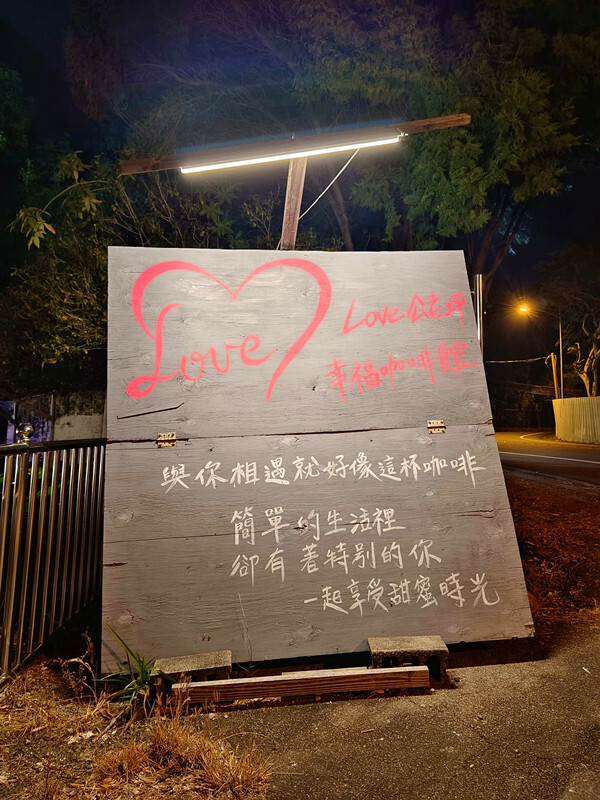 Love
Love 公老坪
幸福咖啡館
與你相遇就好像這杯咖啡
簡單的生活裡
卻有著特別的你
一起享受甜蜜時光